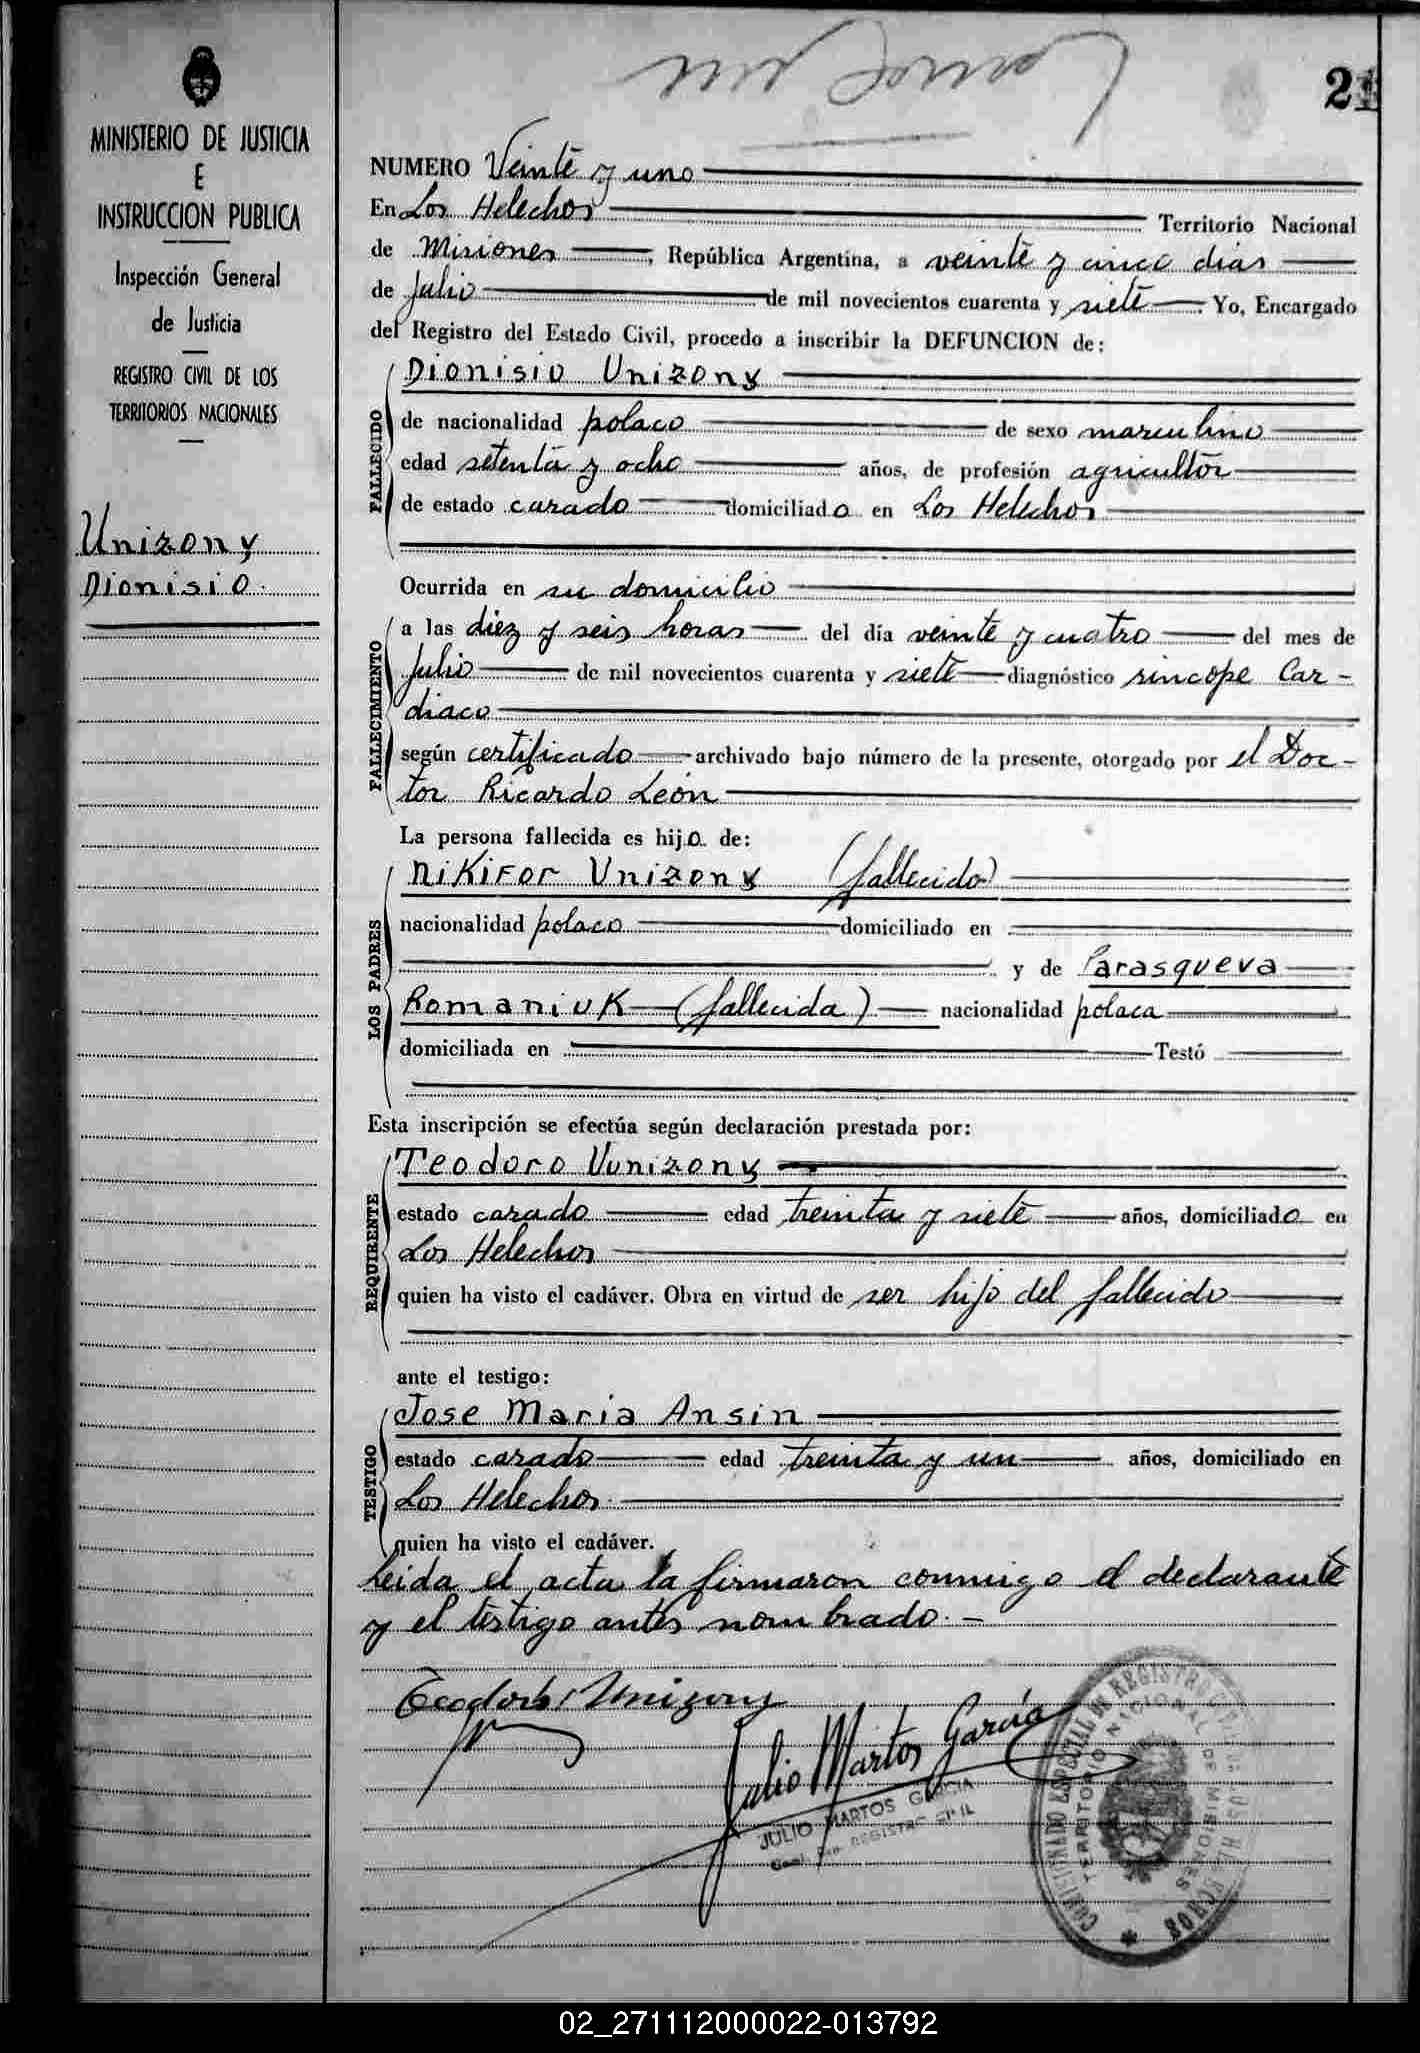 21
MINISTERIO DE JUSTICIA
E
INSTRUCCION PUBLICA
Inspección General
de Justicia
REGISTRO CIVIL DE LOS
TERRITORIOS NACIONALES
Unizony
Dionisio.
NUMERO Veinte y uno
En Los Helechos Territorio Nacional
de Misiones, República Argentina, a veinte y cinco dias
de Julio de mil novecientos cuarenta y siete. Yo, Encargado
del Registro del Estado Civil, procedo a inscribir la DEFUNCION de:
FALLECIDO
Dionisio Unizony
de nacionalidad polaco de sexo masculino
edad setenta y ocho años, de profesión agricultor
de estado casado domiciliado en Los Helechos
Ocurrida en su domicilio
FALLECIMIENTO
a las diez y seis horas del día veinte y cuatro del mes de
Julio de mil novecientos cuarenta y siete diagnóstico sincope Car-
diaco
según certificado archivado bajo número de la presente, otorgado por el Doc-
tor Ricardo León
La persona fallecida es hijo de:
LOS PADRES
Nikifor Unizony (fallecido)
nacionalidad polaco domiciliado en
y de Parasqueva
Romaniuk (fallecida) nacionalidad polaca
domiciliada en Testó
Esta inscripción se efectúa según declaración prestada por:
REQUIRENTE
Teodoro Vunizony
estado casado edad treinta y siete años, domiciliado en
Los Helechos
quien ha visto el cadáver. Obra en virtud de ser hijo del fallecido
ante el testigo:
TESTIGO
Jose Maria Ansin
estado casado edad treinta y un años, domiciliado en
Los Helechos
quien ha visto el cadáver.
Leida el acta la firmaron conmigo el declarante
y el testigo antes nombrado.-
Teodoro Unizony
Julio Martos García
JULIO MARTOS GARCIA
REGISTRO CIVIL
TERRITORIO NACIONAL DE MISIONES
02_271112000022-013792